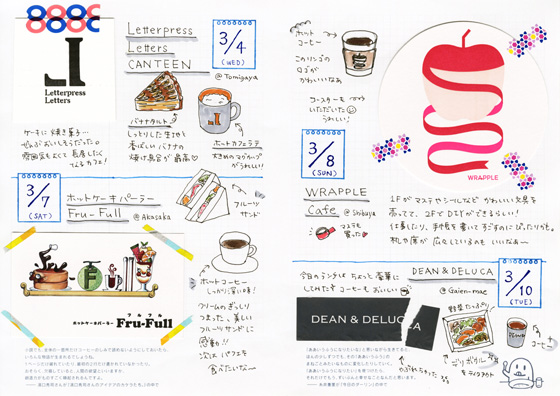 Letterpress
Letters
CANTEEN
3/4
(WED)
@Tomigaya
Letterpress
Letters
バナナタルト
しっとりした生地と
香ばしいバナナの
焼け具合が最高♡
ホットカフェラテ
大きめのマグカップが
うれしい!
ケーキに焼き菓子…
ぜんぶおいしそうだった。
雰囲気もよくて長居したく
なるカフェ!
3/7
(SAT)
ホットケーキパーラー
Fru-Full
@Akasaka
フルーツ
サンド
フルフル
ホットケーキパーラー Fru-Full
ホットコーヒー
しっかり深い味!
クリームのぎっしり
つまった、美しい
フルーツサンドに
感動!!
次はパフェを
食べたいな〜
ホット
コーヒー
このリンゴの
ロゴが
かわいいなぁ
コースターも
いただいた
うれしい!
WRAPPLE
3/8
(SUN)
WRAPPLE
Cafe
@Shibuya
マステも
買った♡
1Fがマステやシールなど かわいい文具を
売ってて、2FでDIYができるらしい!
仕事したり、手帳を書いてすごすのにぴったりかも。
机や席が広々しているのもいいなぁ〜
今日のランチはちょっと豪華に
してみた コーヒーもおいしい
DEAN & DELUCA
@Gaien-mae
3/10
(TUE)
DEAN & DELUCA
野菜たっぷり
デリボックス
をテイクアウト
コーヒー